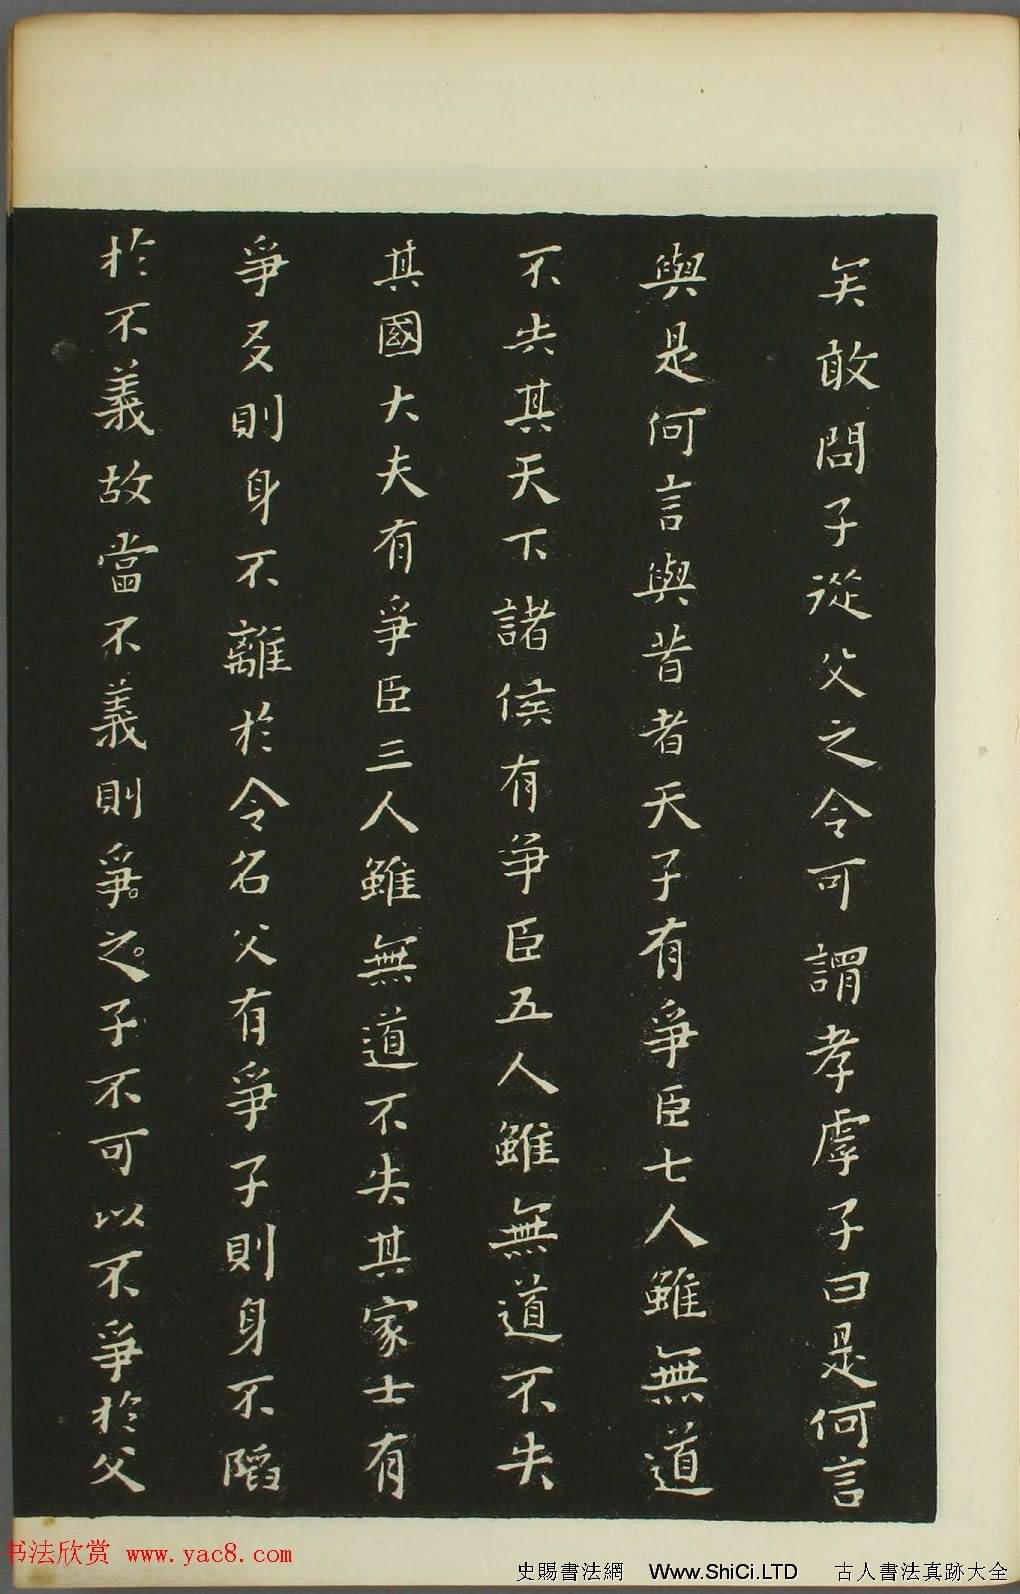 矣敢問子從父之令可謂孝虖子曰是何言
與是何言與昔者天子有爭臣七人雖無道
不失其天下諸侯有爭臣五人雖無道不失
其國大夫有爭臣三人雖無道不失其家士有
爭友則身不離於令名父有爭子則身不陷
於不義故當不義則爭之子不可以不爭於父
书法欣赏 www.yac8.com
史賜書法網 Www.ShiCi.LTD 古人書法真跡大全